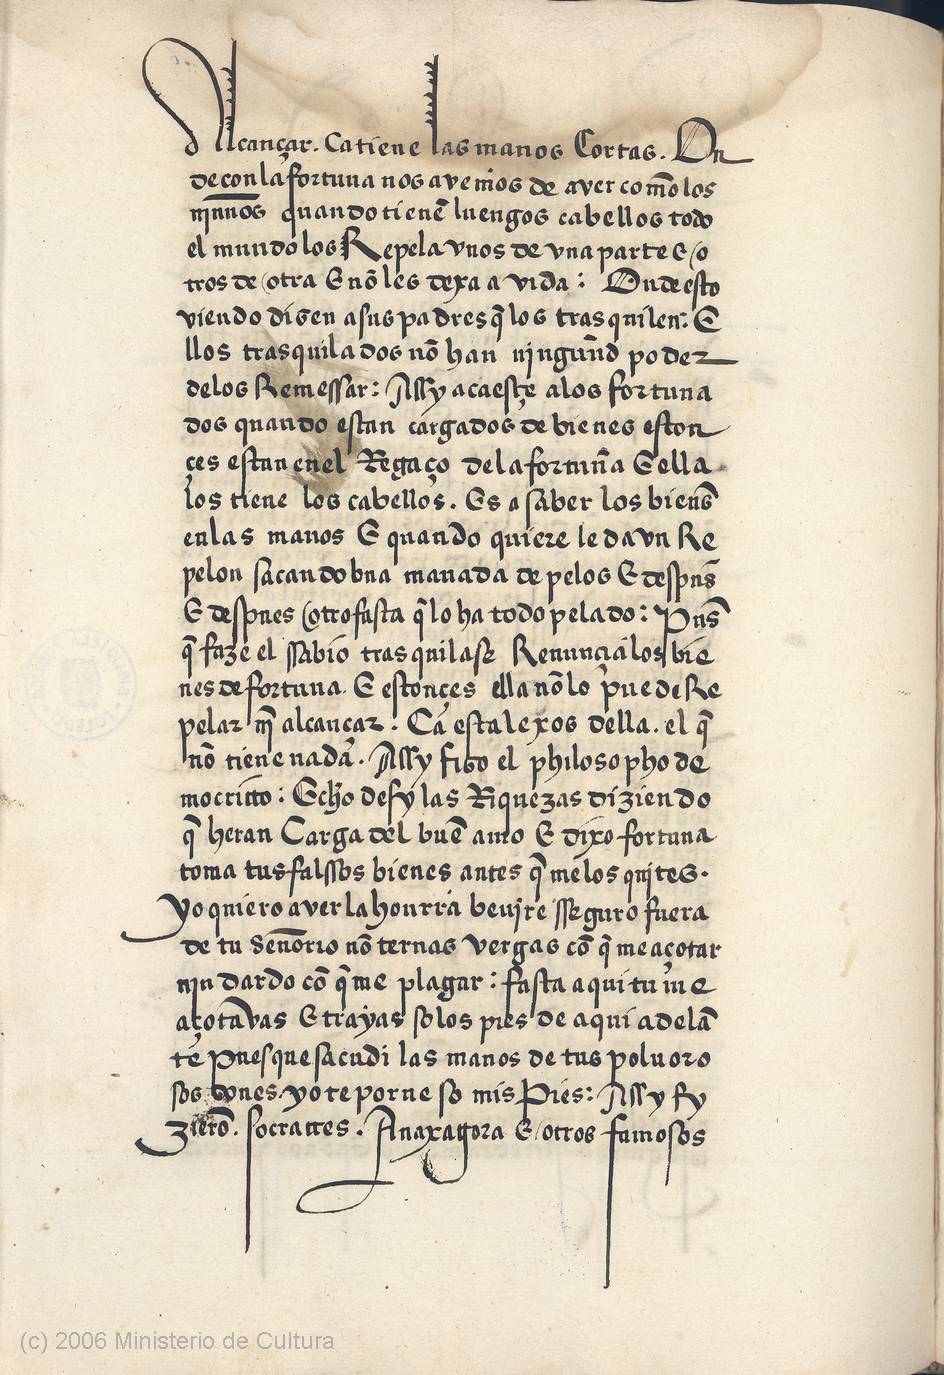 Alcançar. Ca tiene las manos Cortas. On
de con la fortuna nos avem̃os de aver com̃o los
nin̄nos quando tienẽ luengos cabellos todo
el mundo los Repela vnos de vna parte E o
tros de otra E nõ les dexa a vida : Onde esto
viendo disen a sus padres q̃ los trasquilen : E
llos trasquilados nõ han ningun̄d poder
de los Remessar : Assy acaesçe a los fortuna
dos quando estan cargados de bienes eston
çes estan en el Regaço de la fortun̄a E ella
los tiene los cabellos. Es a saber los bienẽs
en las manos E quando quiere le da vn Re
pelon sacando bna manada de pelos E despuẽs
E despues otro fasta q̃ lo ha todo pelado : Puẽs
q̃ faze el ssabio trasquilase Renunçia los bie
nes de fortuna. E estonçes ella nõ lo puede Re
pelar nĩ alcançar. Ca esta lexos della. el q̃
nõ tiene nada. Assy fiso el philosopho de
mocrito : Echo de sy las Riquezas diziendo
q̃ heran Carga del buẽ amo E dixo fortuna
toma tus falssos bienes antes q̃ me los quites.
Yo quiero aver la honrra beuire sseguro fuera
de tu Señorio nõ ternas vergas cõ q̃ me açotar
nin dardo cõ q̃ me plagar : fasta aqui tu me
açotavas E trayas so los pies de aqui adelã
te pues que sacudi las manos de tus poluoro
sos dones. yo te porne so mis Pies : Assy fy
zierõ. socrates. Anaxagora E otros famosos
(c) 2006 Ministerio de Cultura